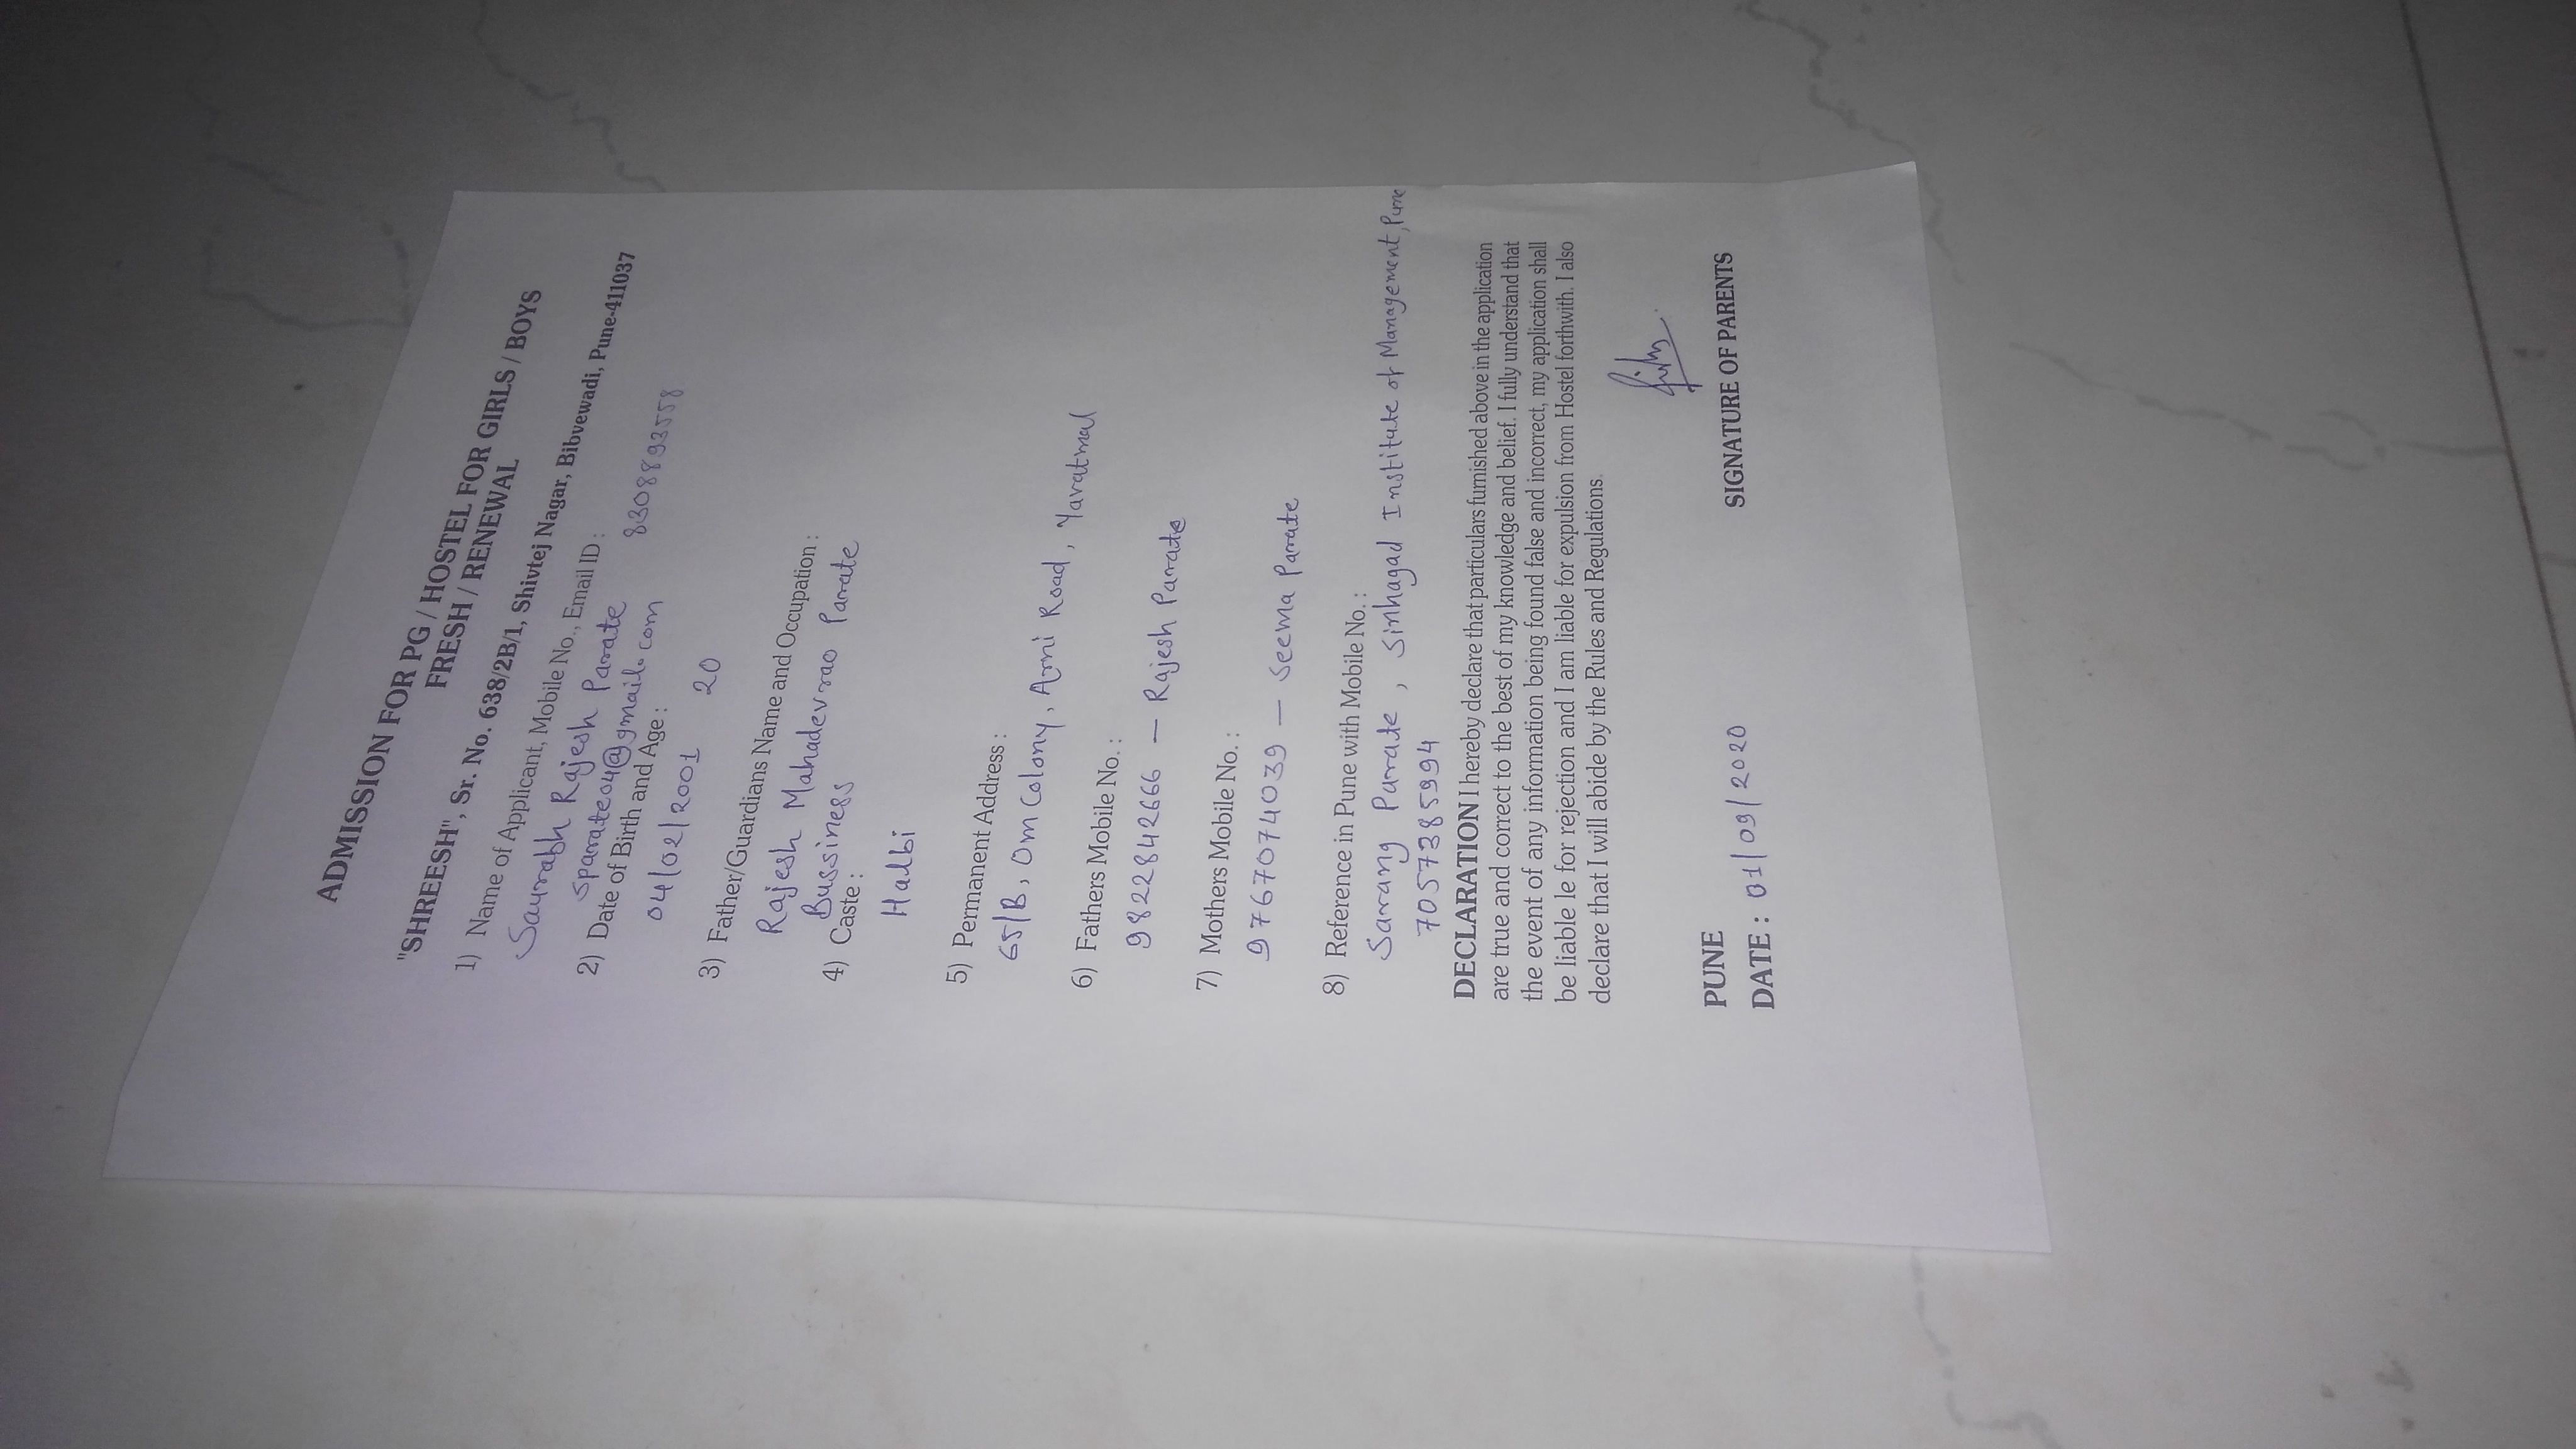 ADMISSION FOR PG / HOSTEL FOR GIRLS / BOYS
FRESH / RENEWAL
"SHREESH", Sr. No. 638/2B/1, Shivtej Nagar, Bibvewadi, Pune-411037
1) Name of Applicant, Mobile No., Email ID :
Saurabh Rajesh Parate
sparate04@gmail.com 8308893558
2) Date of Birth and Age :
04/02/2001 20
3) Father/Guardians Name and Occupation :
Rajesh Mahadevrao Parate
Bussiness
4) Caste :
Halbi
5) Permanent Address :
65/B, Om Colony, Arni Road, Yavatmal
6) Fathers Mobile No. :
9822842666 — Rajesh Parate
7) Mothers Mobile No. :
9767074039 — Seema Parate
8) Reference in Pune with Mobile No. :
Sarang Parate, Sinhagad Institute of Management, Pune
7057385994
DECLARATION I hereby declare that particulars furnished above in the application
are true and correct to the best of my knowledge and belief. I fully understand that
the event of any information being found false and incorrect, my application shall
be liable le for rejection and I am liable for expulsion from Hostel forthwith. I also
declare that I will abide by the Rules and Regulations.
PUNE SIGNATURE OF PARENTS
DATE : 01/09/2020